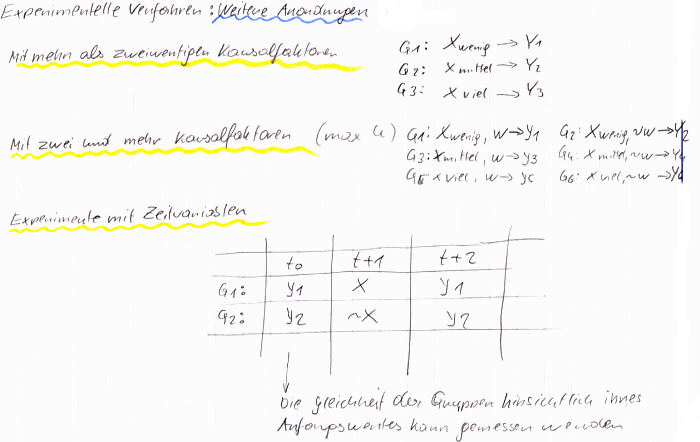 Experimentelle Verfahren: Weitere Anordnungen
Mit mehr als zweiwertigen Kausalfaktoren
G1: Xwenig → Y1
G2: X mittel → Y2
G3: X viel → Y3
Mit zwei und mehr Kausalfaktoren (max 4)
G1: Xwenig, W → Y1 G2: Xwenig, ~W → Y2
G3: Xmittel, W → Y3 G4: Xmittel, ~W → Y4
G5: X viel, W → Y5 G6: X viel, ~W → Y6
Experimente mit Zeitvariablen
t0 t+1 t+2
G1: Y1 X Y1
G2: Y2 ~X Y2
Die gleichheit der Gruppen hinsichtlich ihres
Anfangswertes kann gemessen werden